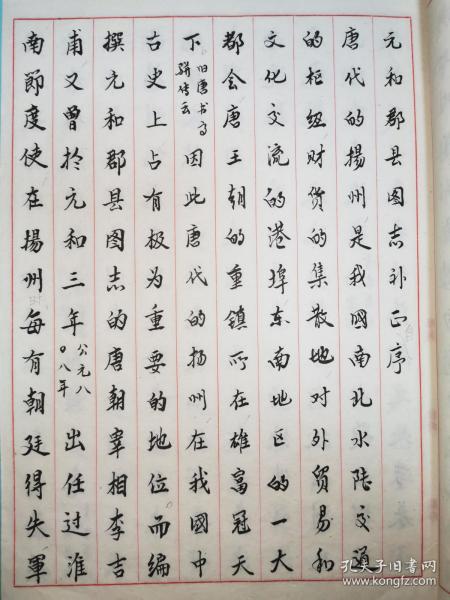 元和郡县图志补正序
唐代的揚州是我國南北水陆交通
的枢纽财货的集散地对外贸易和
文化交流的港埠东南地区的一大
都会唐王朝的重鎮所在雄富冠天
下旧唐书高骈传云因此唐代的扬州在我國中
古史上占有极为重要的地位而编
撰元和郡县图志的唐朝宰相李吉
甫又曾於元和三年公元八〇八年出任过淮
南節度使在揚州每有朝廷得失軍
孔夫子旧书网